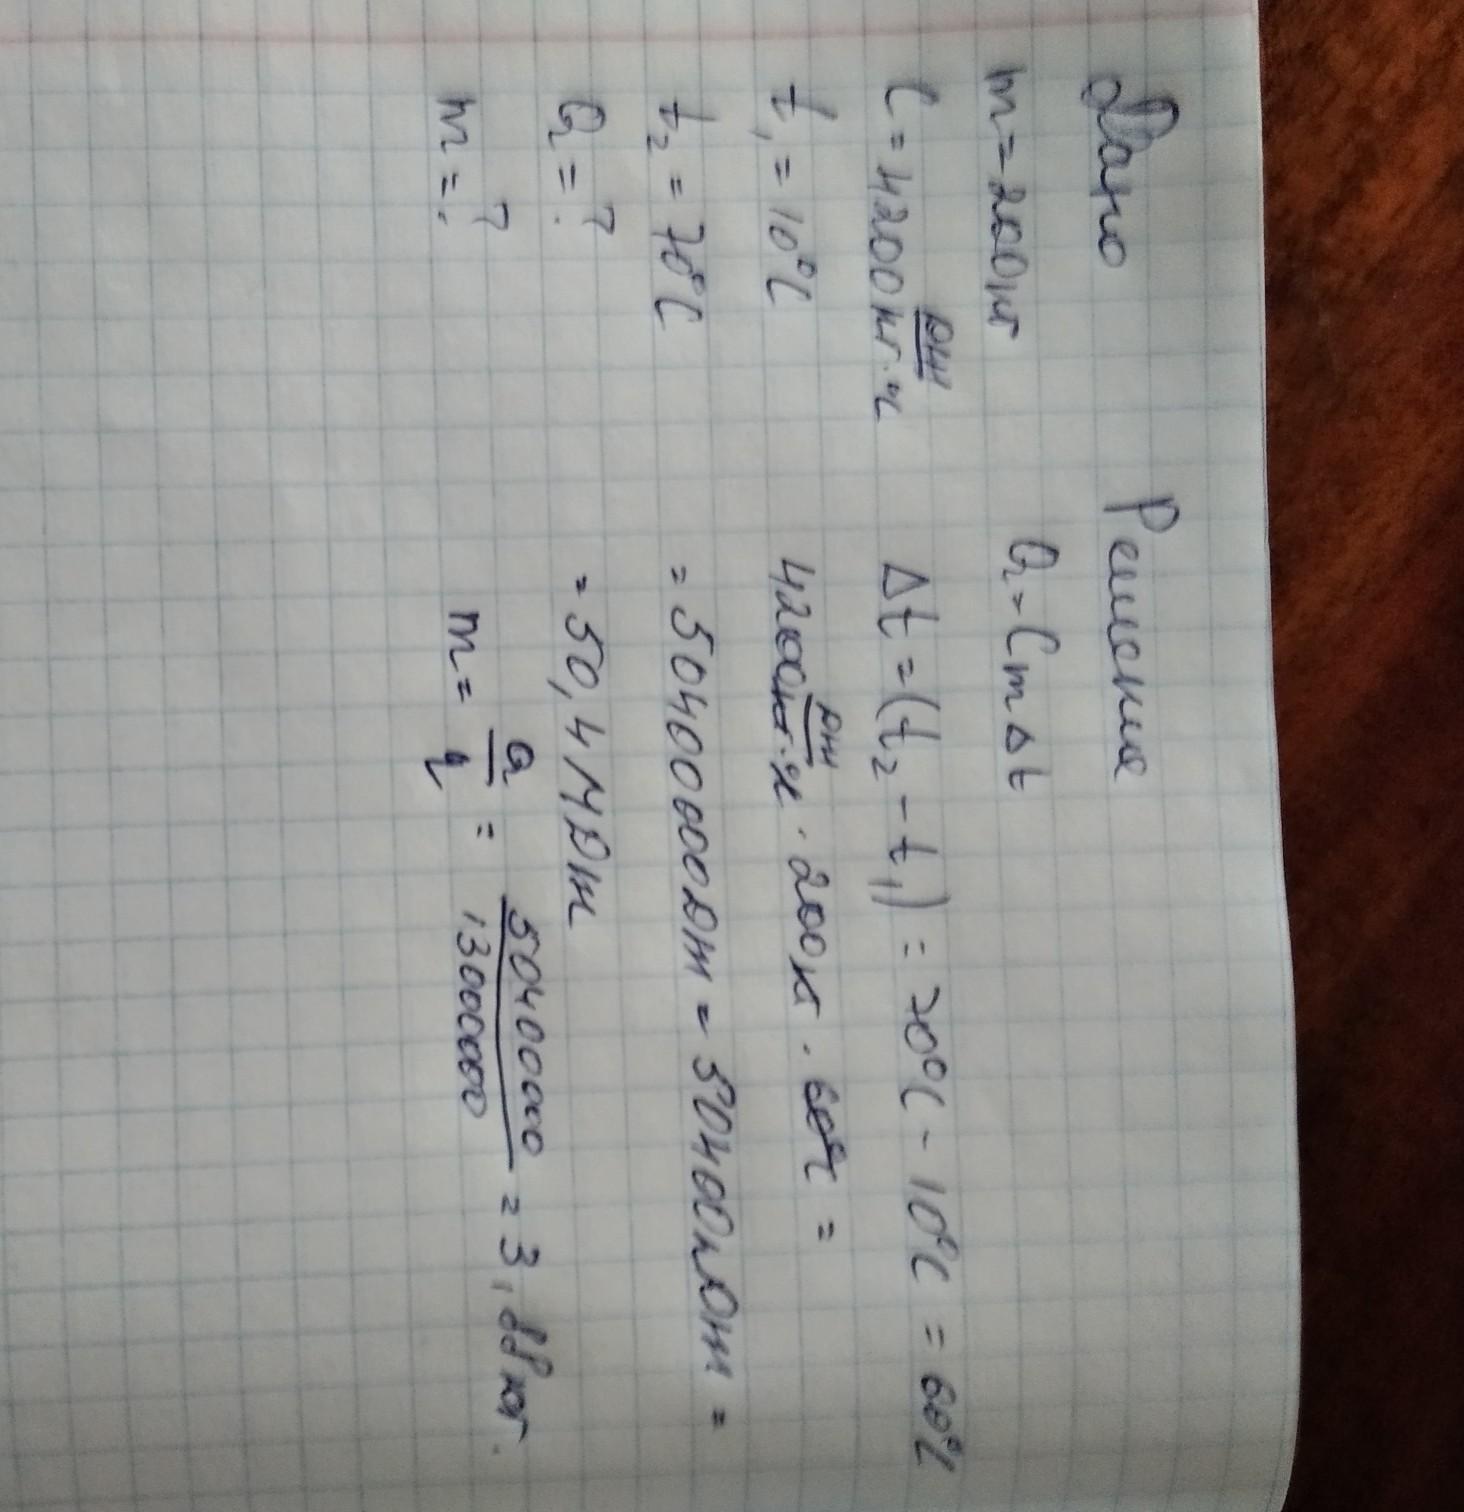 Дано
m=200кг
C=4200 Дж/кг·°C
t₁=10°C
t₂=70°C
Q=?
m=?
Решение
Q=Cm∆t
∆t=(t₂-t₁)=70°C-10°C=60°C
4200 Дж/кг·°C · 200кг · 60°C =
= 50400000Дж = 50400кДж =
= 50,4 МДж
m= Q/q = 50400000/13000000 = 3,88кг.